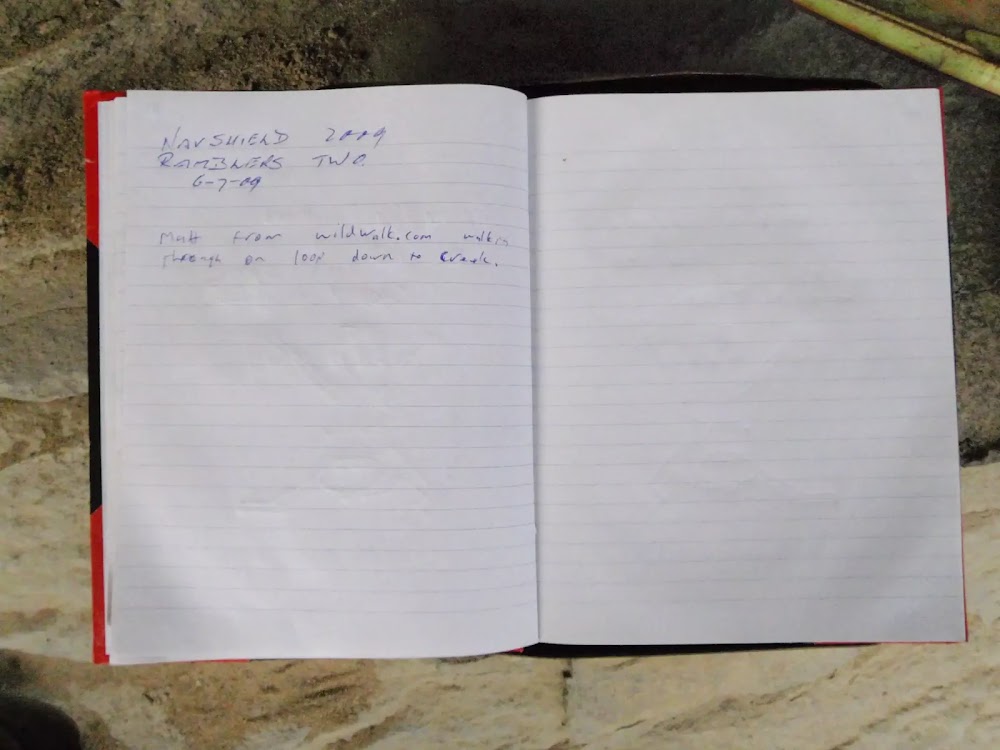 NAVSHIELD 2009
RAMBLERS TWO
6-7-09
Matt from wildwalk.com walking
through on loop down to creek.